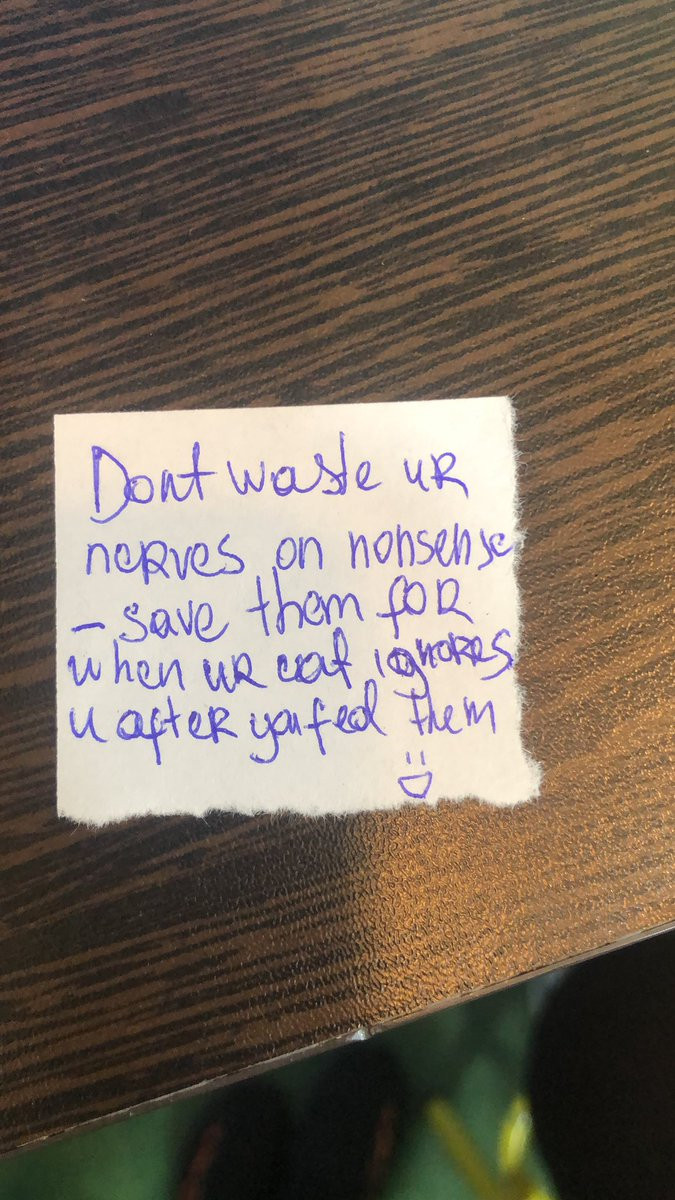 Dont waste uR
neRves on nonsense
– save them foR
when uR cat ignoRes
u afteR you fed them